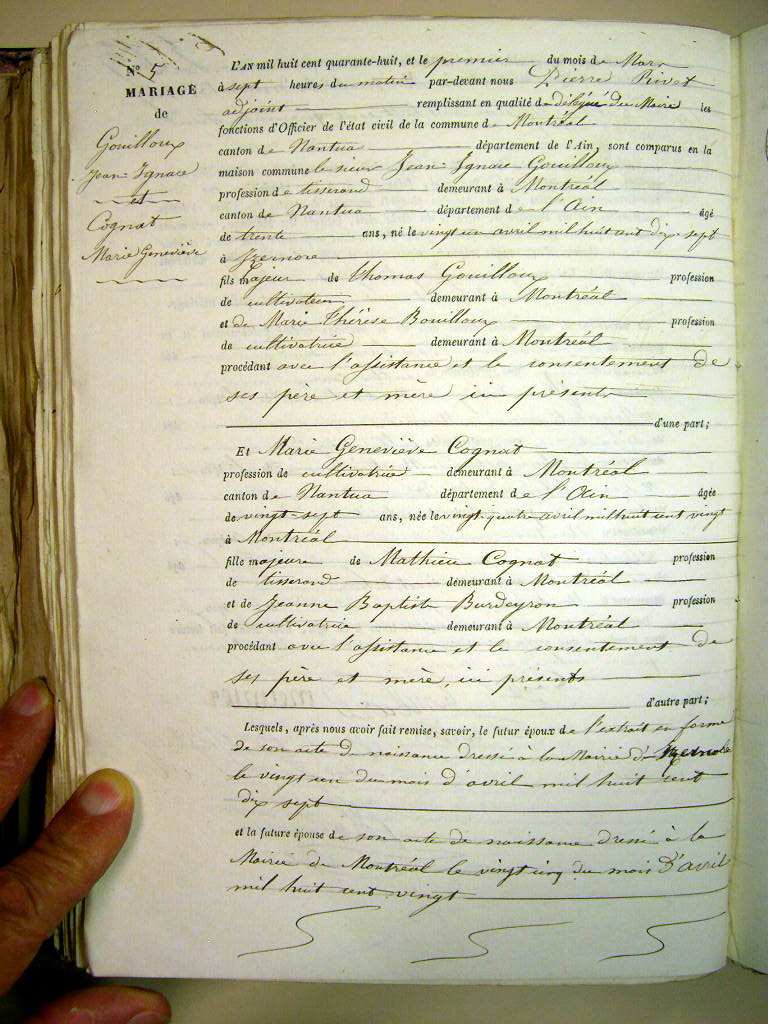 N° 5
MARIAGE
de
Gouilloux
Jean-Ignace
et
Cognat
Marie Geneviève
L'AN mil huit cent quarante-huit, et le premier du mois de Mars
à sept heures du matin par-devant nous Pierre Rivet
adjoint remplissant en qualité de délégué du Maire les
fonctions d'Officier de l'état civil de la commune de Montréal
canton de Nantua département de l'Ain, sont comparus en la
maison commune le sieur Jean-Ignace Gouilloux
profession de tisserand demeurant à Montréal
canton de Nantua département de l'Ain âgé
de trente ans, né le vingt un avril mil huit cent dix sept
à Izernore
fils majeur de Thomas Gouilloux profession
de cultivateur demeurant à Montréal
et de Marie Thérèse Bouilloux profession
de cultivatrice demeurant à Montréal
procédant avec l'assistance et le consentement de
ses père et mère ici présents
d'une part;
Et Marie Geneviève Cognat
profession de cultivatrice demeurant à Montréal
canton de Nantua département de l'Ain âgée
de vingt-sept ans, née le vingt quatre avril mil huit cent vingt
à Montréal
fille majeure de Mathieu Cognat profession
de tisserand demeurant à Montréal
et de Jeanne Baptiste Burdeyron profession
de cultivatrice demeurant à Montréal
procédant avec l'assistance et le consentement de
ses père et mère, ici présents
d'autre part;
Lesquels, après nous avoir fait remise, savoir, le futur époux de l'extrait en forme
de son acte de naissance dressé à la Mairie d'Izernore
le vingt un du mois d'avril mil huit cent
dix sept
et la future épouse de son acte de naissance dressé à la
Mairie de Montréal le vingt cinq du mois d'avril
mil huit cent vingt